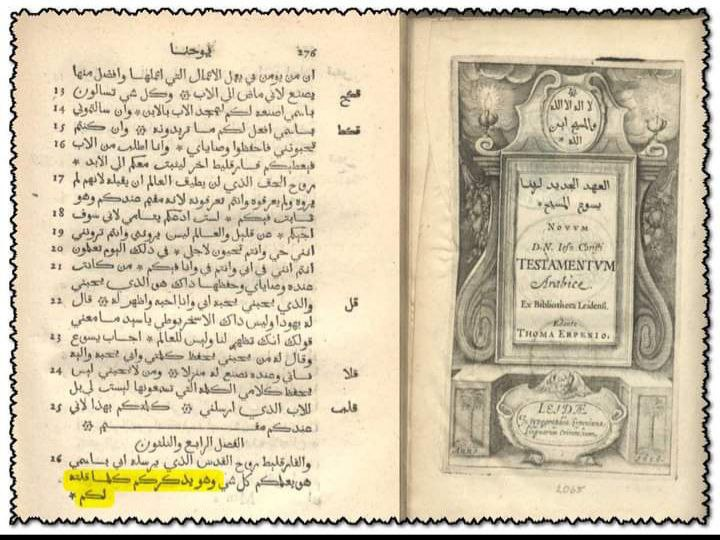 يوحنا 276
ان من يومن بي يعمل الاعمال التي اعملها وافضل منها
يصنع لاني ماض الي الاب وكل شي تسالون 13 قكح
باسمي اصنعه لكم ليمجد الاب بالابن * وان سالتموني 14
باسمي افعل لكم ما تريدونه وان كنتم 15 قكط
تحبونني فاحفظوا وصاياي * وانا اطلب من الاب 16
فيعطيكم فارقليط اخر ليثبت معكم الي الابد *
روح الحق الذي لن يطيف العالم ان يقبله لانهم لم 17
يروه ولم يعرفوه وانتم تعرفونه لانه مقيم عندكم وهو
ثابت فيكم * لست ادعكم يتامي لاني سوف 18
اجيكم * عن قليل والعالم ليس يروني وانتم تروني 19
انني حي وانتم تحيون لاجلي * في ذلك اليوم تعلمون 20
انتم انني في ابي وانتم في وانا فيكم * من كانت 21
عنده وصاياي وحفظها ذاك هو الذي يحبني
والذي يحبني يحبه ابي وانا احبه واظهر له قال 22 قل
له يهوذا وليس ذاك الاسخريوطي يا سيد ما معني
قولك انك تظهر لنا وليس للعالم * اجاب يسوع 23
وقال له من يحبني يحفظ كلمتي وابي يحبه واليه
ناتي وعنده نصنع له منزلا ومن لا يحبني ليس 24 قلا
يحفظ كلامي الكلمة التي تسمعونها ليست لي بل
للاب الذي ارسلني كلمتكم بهذا لاني 25 قلب
عندكم مقيم
الفصل الرابع والثلثون
والفارقليط روح القدس الذي يرسله ابي باسمي 26
هو يعلمكم كل شي وهو يذكركم كلما قلته
لكم *
لا اله الا الله
والمسيح ابن
الله *
العهد الجديد لربنا
يسوع المسيح *
NOVVM
D.N. Iesu Christi
TESTAMENTVM
Arabice.
Ex Bibliotheca Leidensi.
Edente
THOMA ERPENIO.
LEIDÆ,
Ex Typographia Erpeniana
Linguarum Orientalium.
Anno
2065